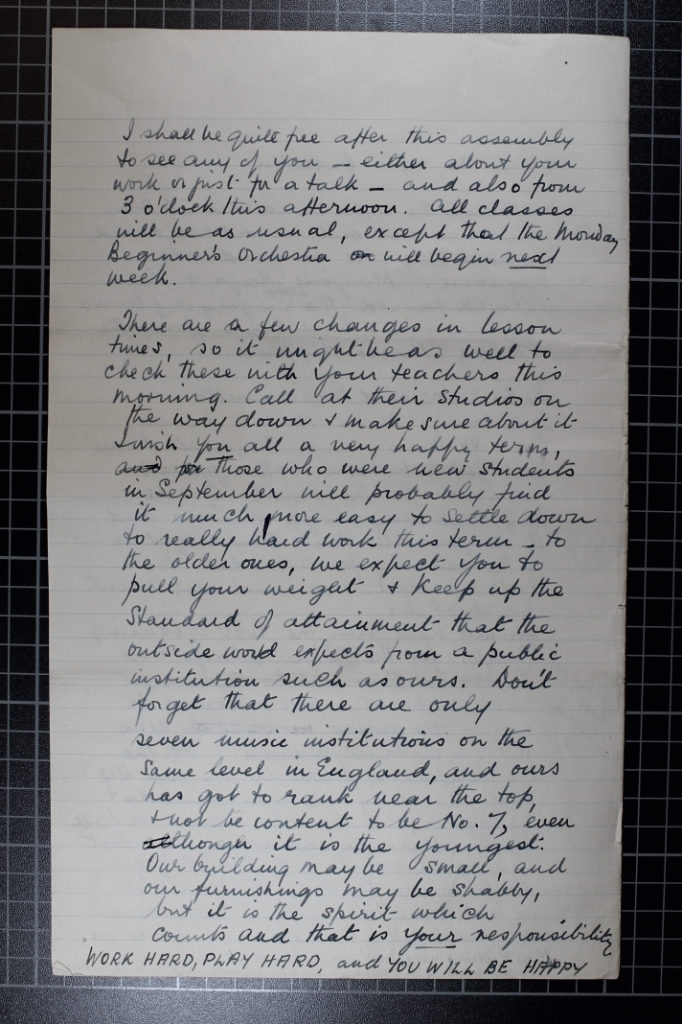 I shall be quite free after this assembly
to see any of you – either about your
work or just for a talk – and also from
3 o'clock this afternoon. All classes
will be as usual, except that the Monday
Beginner's Orchestra will begin next
week.
There are a few changes in lesson
times, so it might be as well to
check these with your teachers this
morning. Call at their studios on
the way down & make sure about it
I wish you all a very happy term,
and for Those who were new students
in September will probably find
it much more easy to settle down
to really hard work this term – to
the older ones, we expect you to
pull your weight & keep up the
Standard of attainment that the
outside world expects from a public
institution such as ours. Don't
forget that there are only
seven music institutions on the
same level in England, and ours
has got to rank near the top,
& not be content to be No. 7, even
although it is the youngest.
Our building may be small, and
our furnishings may be shabby,
but it is the spirit which
counts and that is your responsibility
WORK HARD, PLAY HARD, and YOU WILL BE HAPPY